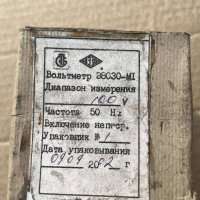 Вольтметр Э8030-М1
Диапазон измерения
100 V
Частота 50 Hz
Включение непоср.
Упаковщик № 1
Дата упаковывания
0409 1982 г